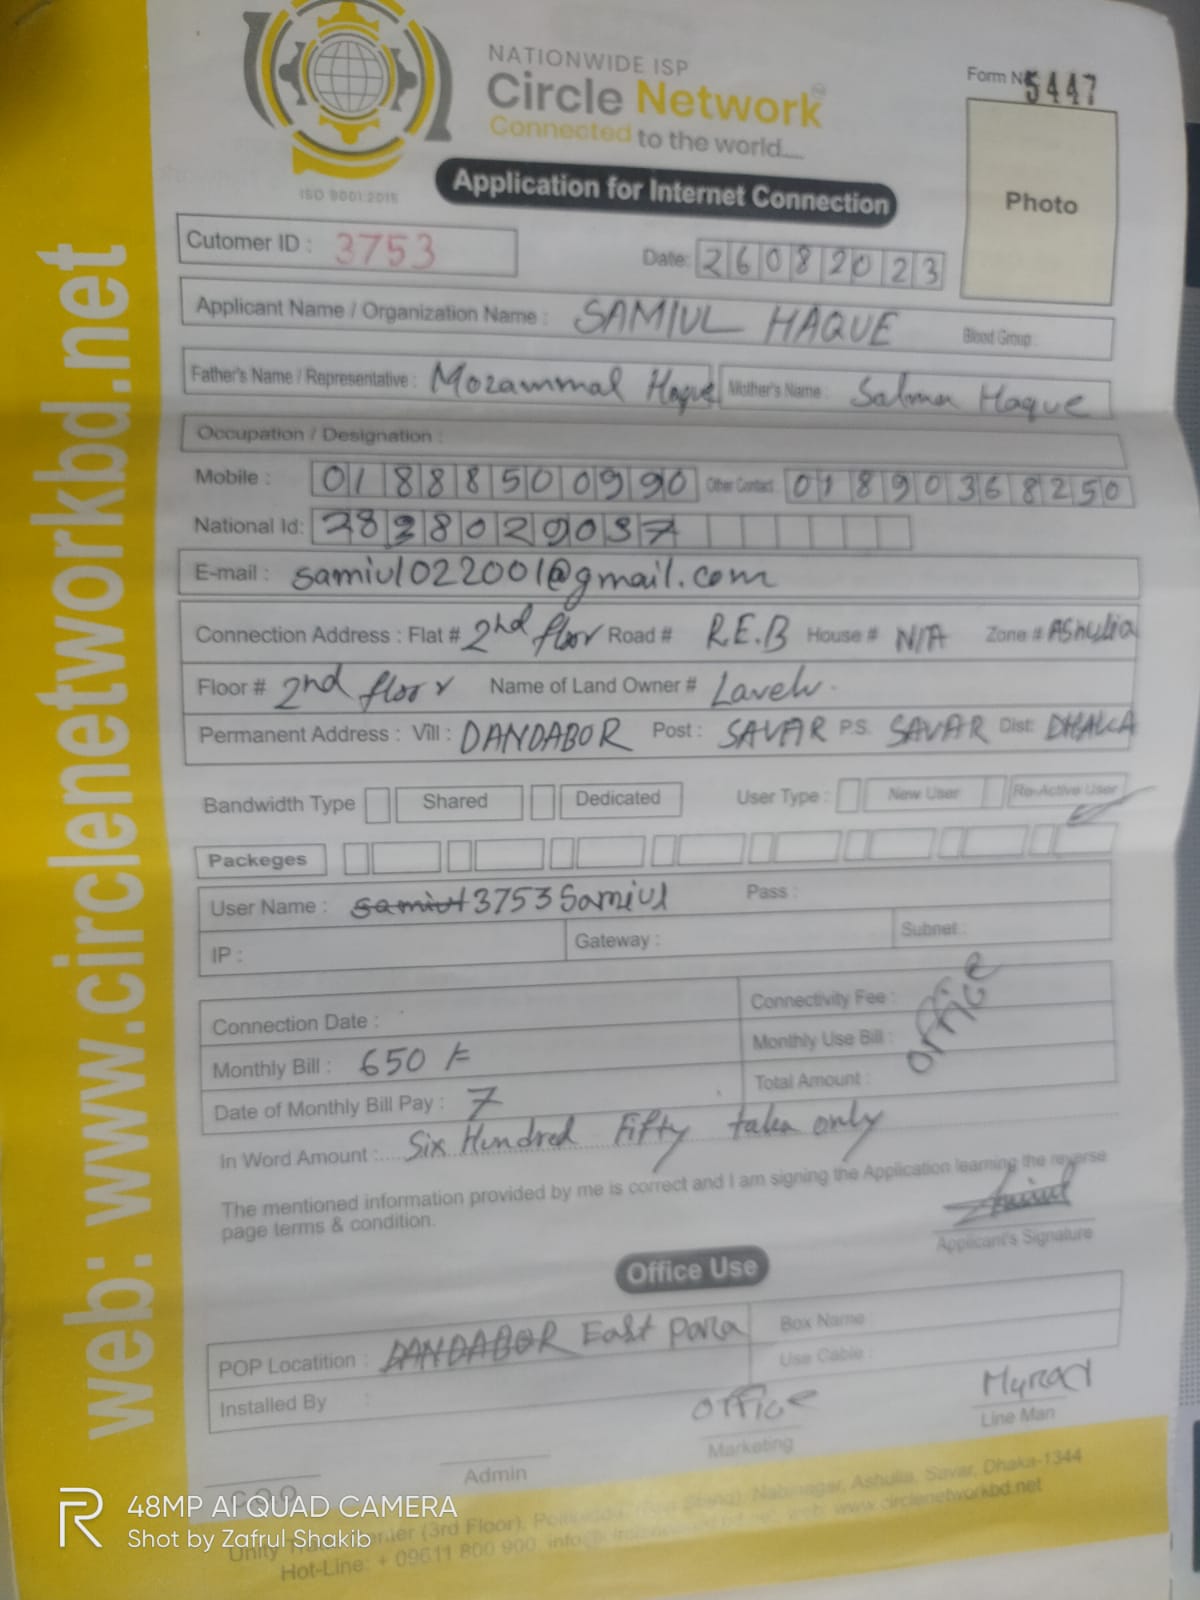 NATIONWIDE ISP
Circle Network
Connected to the world....
ISO 9001:2015
Form No 5447
Photo
Application for Internet Connection
Cutomer ID : 3753
Date: 26082023
Applicant Name / Organization Name : SAMIUL HAQUE Blood Group :
Father's Name / Representative : Mozammal Haque Mother's Name : Salma Haque
Occupation / Designation :
Mobile : 01888500990 Other Contact 01890368250
National Id:
E-mail : samiul022001@gmail.com
Connection Address : Flat # 2nd floor Road # R.E.B House # N/A Zone # Ashulia
Floor # 2nd floor Name of Land Owner #
Permanent Address : Vill : DANDABOR Post : SAVAR P.S. SAVAR Dist: DHAKA
Bandwidth Type Shared Dedicated User Type : New User Re-Active User
Packeges
User Name : samiul 3753Samiul Pass :
IP : Gateway : Subnet :
Connection Date : Connectivity Fee :
Monthly Bill : 650 Monthly Use Bill : office
Date of Monthly Bill Pay : 7 Total Amount :
In Word Amount :.... Six Hundred Fifty taka only
The mentioned information provided by me is correct and I am signing the Application learning the reverse
page terms & condition.
Applicant's Signature
Office Use
POP Locatition : DANDABOR East para Box Name :
Use Cable :
Installed By :
office
Admin Marketing Line Man
(3rd Floor), Nabinagar, Ashulia, Savar, Dhaka-1344
Hot-Line: + 09611 800 900, www.circlenetworkbd.net
web: www.circlenetworkbd.net
48MP AI QUAD CAMERA
Shot by Zafrul Shakib